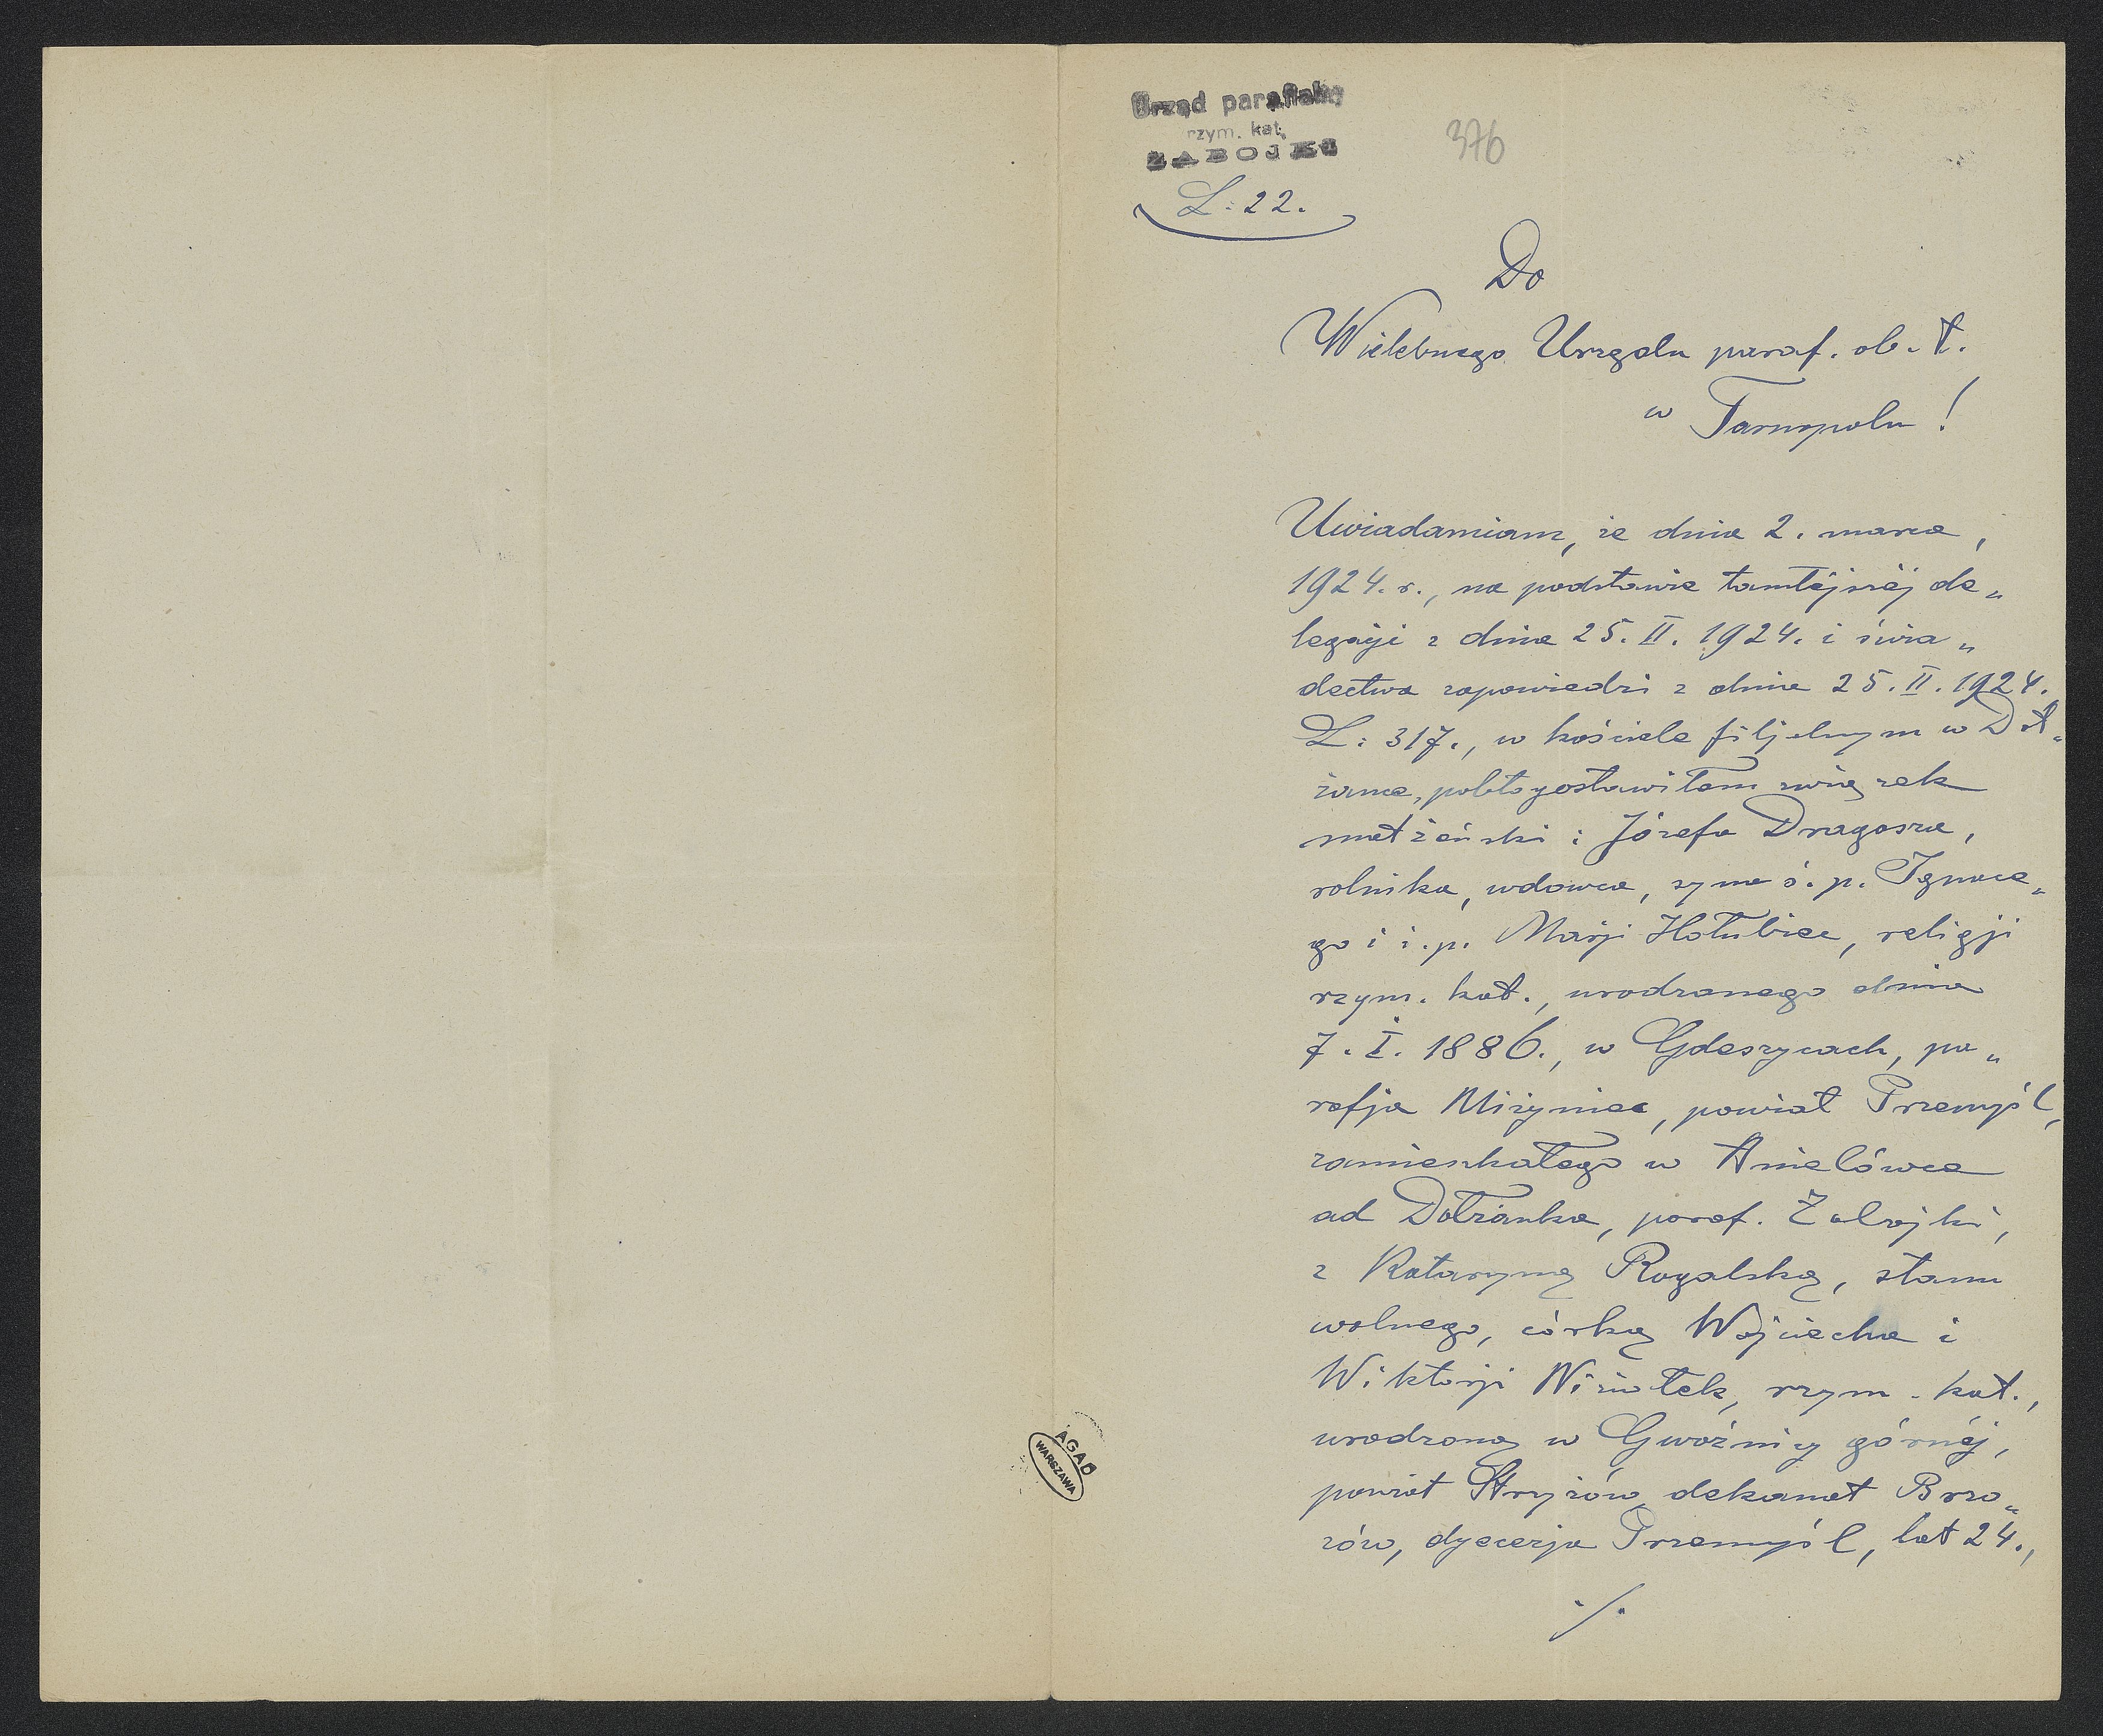 Urząd parafialny
rzym. kat.
ZABOJKI
376
L: 22.
Do
Wielebnego Urzędu paraf. ob. ł.
w Tarnopolu!
Uwiadamiam, że dnia 2. marca,
1924. r., na podstawie tamtéjszéj de„
legacji z dnia 25. II. 1924. i świa„
dectwa zapowiedzi z dnia 25. II. 1924.
L: 317., w kościele filjalnym w Doł„
żance, pobłogosławiłem związek
małżeński: Józefa Dragosza,
rolnika, wdowca, syna ś. p. Ignace„
go i ś. p. Marji Hołubiec, religji
rzym. kat., urodzonego dnia
7. I. 1886., w Gdeszycach, pa„
rafja Miżyniec, powiat Przemyśl,
zamieszkałego w Anielówce
ad Dołżanka, paraf. Zabojki,
z Katarzyną Rogalską, stanu
wolnego, córką Wojciecha i
Wiktorji Niziołek, rzym. kat.,
urodzoną w Gwoźnicy górnéj,
powiat Strzyżów, dekanat Brzo„
zów, dyecezja Przemyśl, lat 24.,
./.
AGAD
WARSZAWA